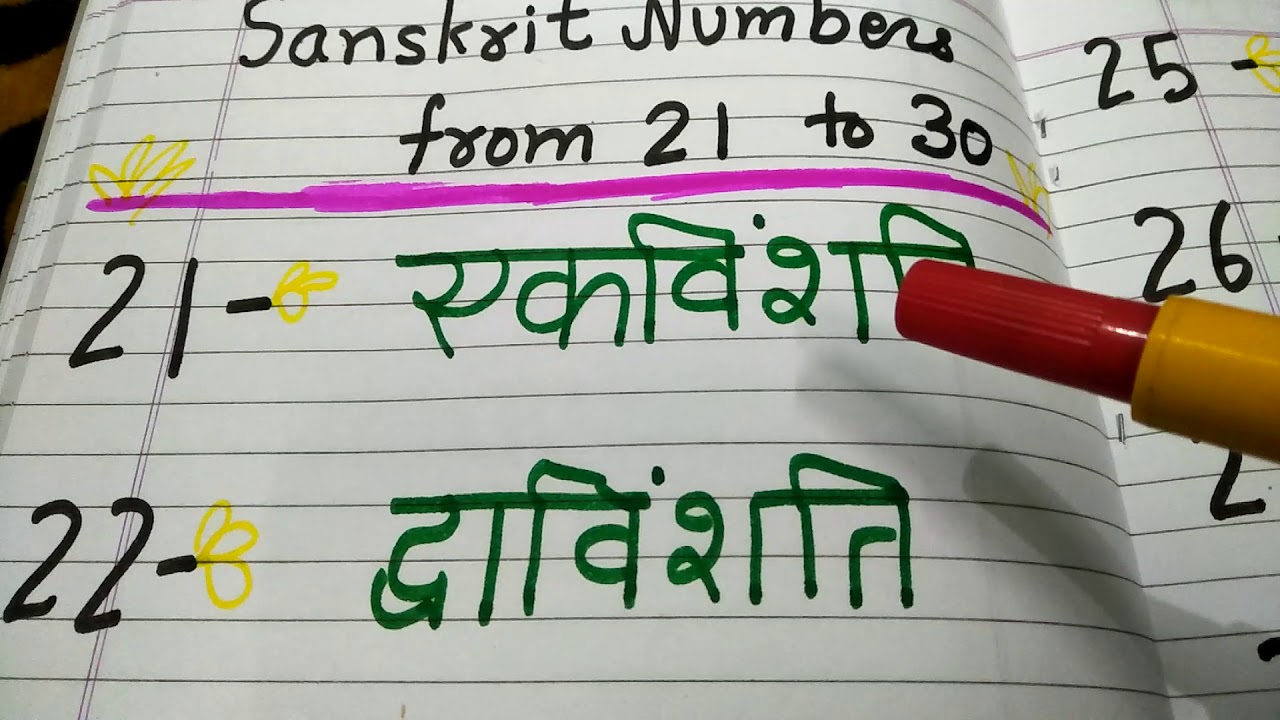 Sanskrit Numbers
from 21 to 30
21 - एकविंशति
22 - द्वाविंशति
25 -
26